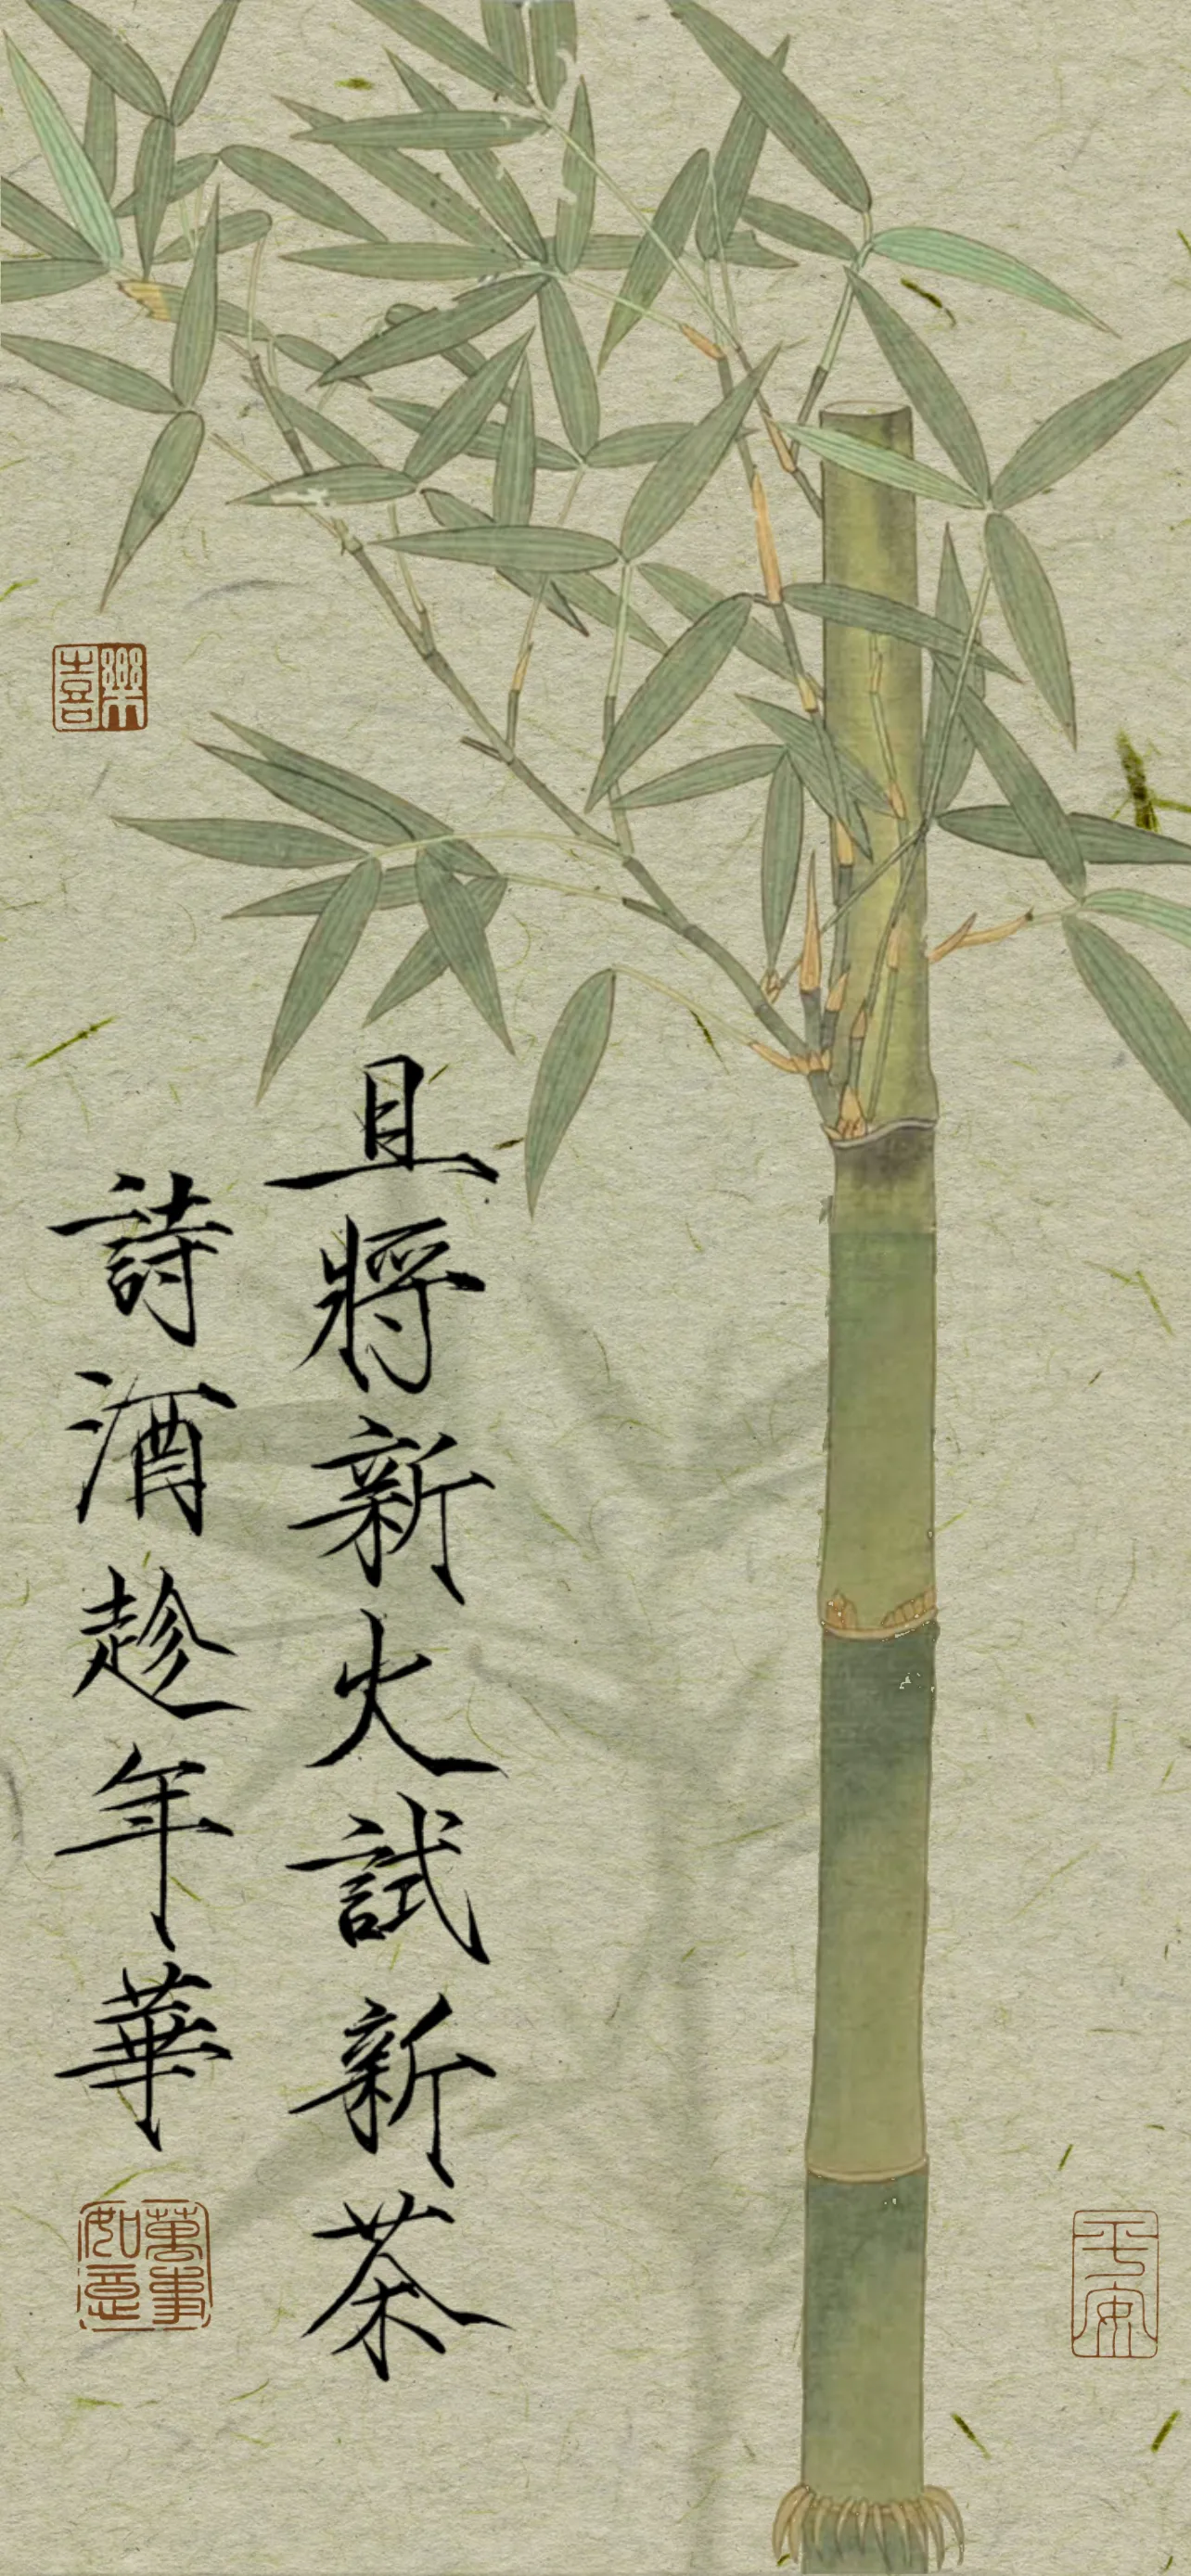 且將新火試新茶
詩酒趁年華
喜樂
萬事如意
平安